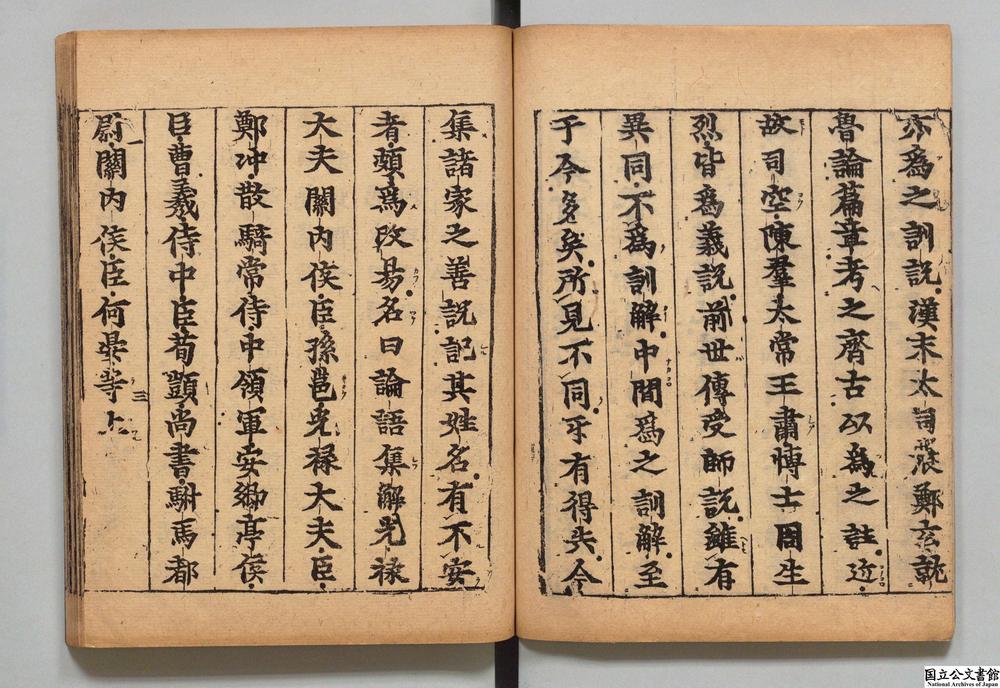 亦爲之訓説漢末太司農鄭玄就
魯論篇章考之齊古以爲之註近
故司空陳羣太常王肅博士周生
烈皆爲義説前世傳受師説雖有
異同不爲訓解中間爲之訓解至
于今多矣所見不同牙有得失今
集諸家之善説記其姓名有不安
者頗爲改易名曰論語集解光禄
大夫關内侯臣孫邕光禄大夫臣
鄭冲散騎常侍中領軍安郷亭侯
臣曹羲侍中臣荀顗尚書駙馬都
尉關内侯臣何晏等上
国立公文書館
National Archives of Japan